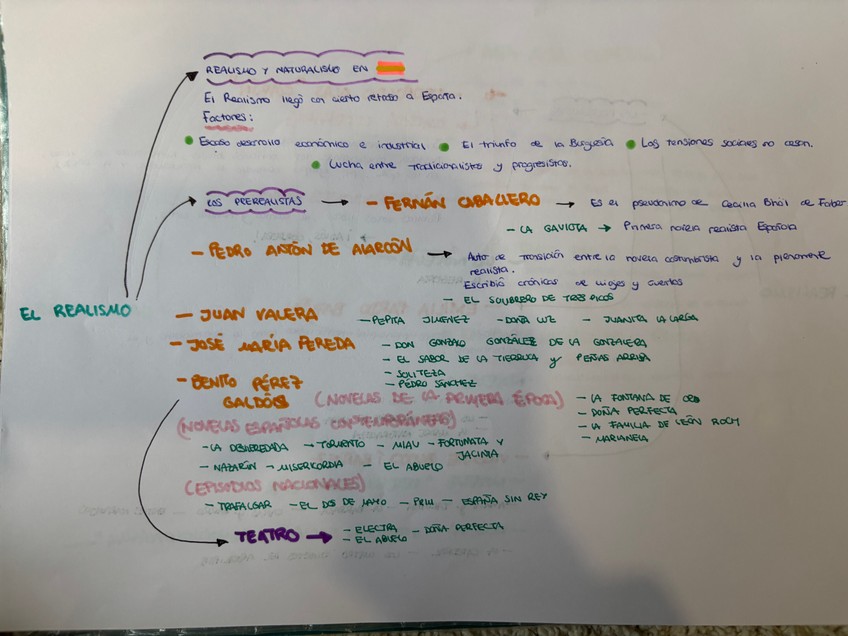 REALISMO Y NATURALISMO EN
El Realismo llegó con cierto retraso a España.
Factores:
Escaso desarrollo económico e industrial
El triunfo de la Burguesía
Las tensiones sociales no cesan.
Lucha entre tradicionalistas y progresistas.
LOS PREREALISTAS
- FERNÁN CABALLERO
Es el pseudonimo de Cecilia Bhöl de Faber
- LA GAVIOTA → Primera novela realista Española
- PEDRO ANTÓN DE AlARCÓN
Autor de transición entre la novela costumbrista y la plenamente
realista.
Escribió crónicas de viajes y cuentos
- EL SOMBRERO DE TRES PICOS
EL REALISMO
- JUAN VALERA
- PEPITA JIMÉNEZ - DOÑA LUZ - JUANITA LA LARGA
- JOSÉ MARÍA PEREDA
- DON GONZALO GONZÁLEZ DE LA GONZALERA
- EL SABOR DE LA TIERRUCA Y PEÑAS ARRIBA
- SOLITEZA
- PEDRO SÁNCHEZ
- BENITO PÉREZ
GALDÓS
(NOVELAS DE LA PRIMERA ÉPOCA)
- LA FONTANA DE ORO
- DOÑA PERFECTA
- LA FAMILIA DE LEÓN ROCH
- MARIANELA
(NOVELAS ESPAÑOLAS CONTEMPORÁNEAS)
- LA DESHEREDADA - TORMENTO - MIAU - FORTUNATA Y
JACINTA
- NAZARÍN - MISERICORDIA - EL ABUELO
(EPISODIOS NACIONALES)
- TRAFALGAR - EL DOS DE MAYO - PRIM - ESPAÑA SIN REY
TEATRO →
- ELECTRA - DOÑA PERFECTA
- EL ABUELO